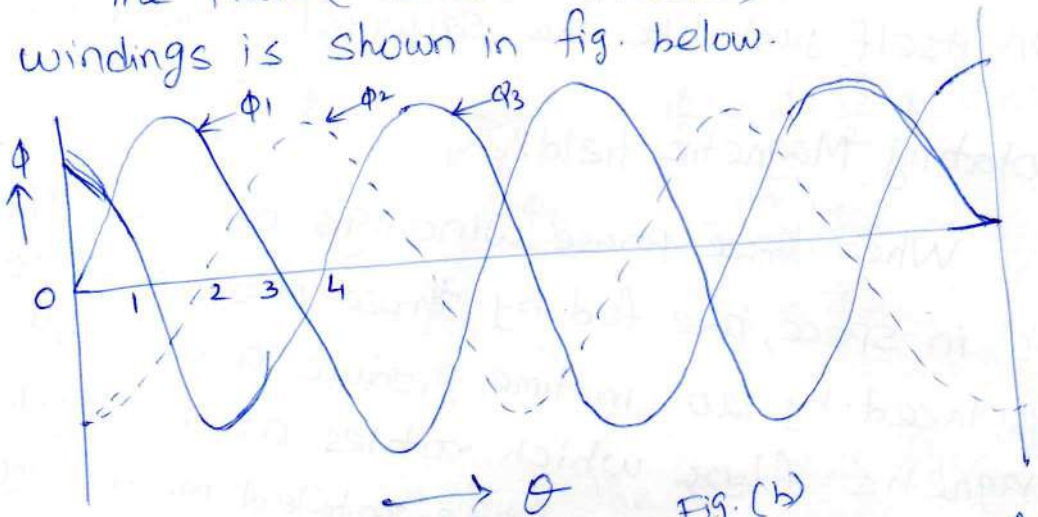 windings is shown in fig. below.
Φ1 Φ2 Φ3
Φ
0 1 2 3 4
θ
Fig. (b)